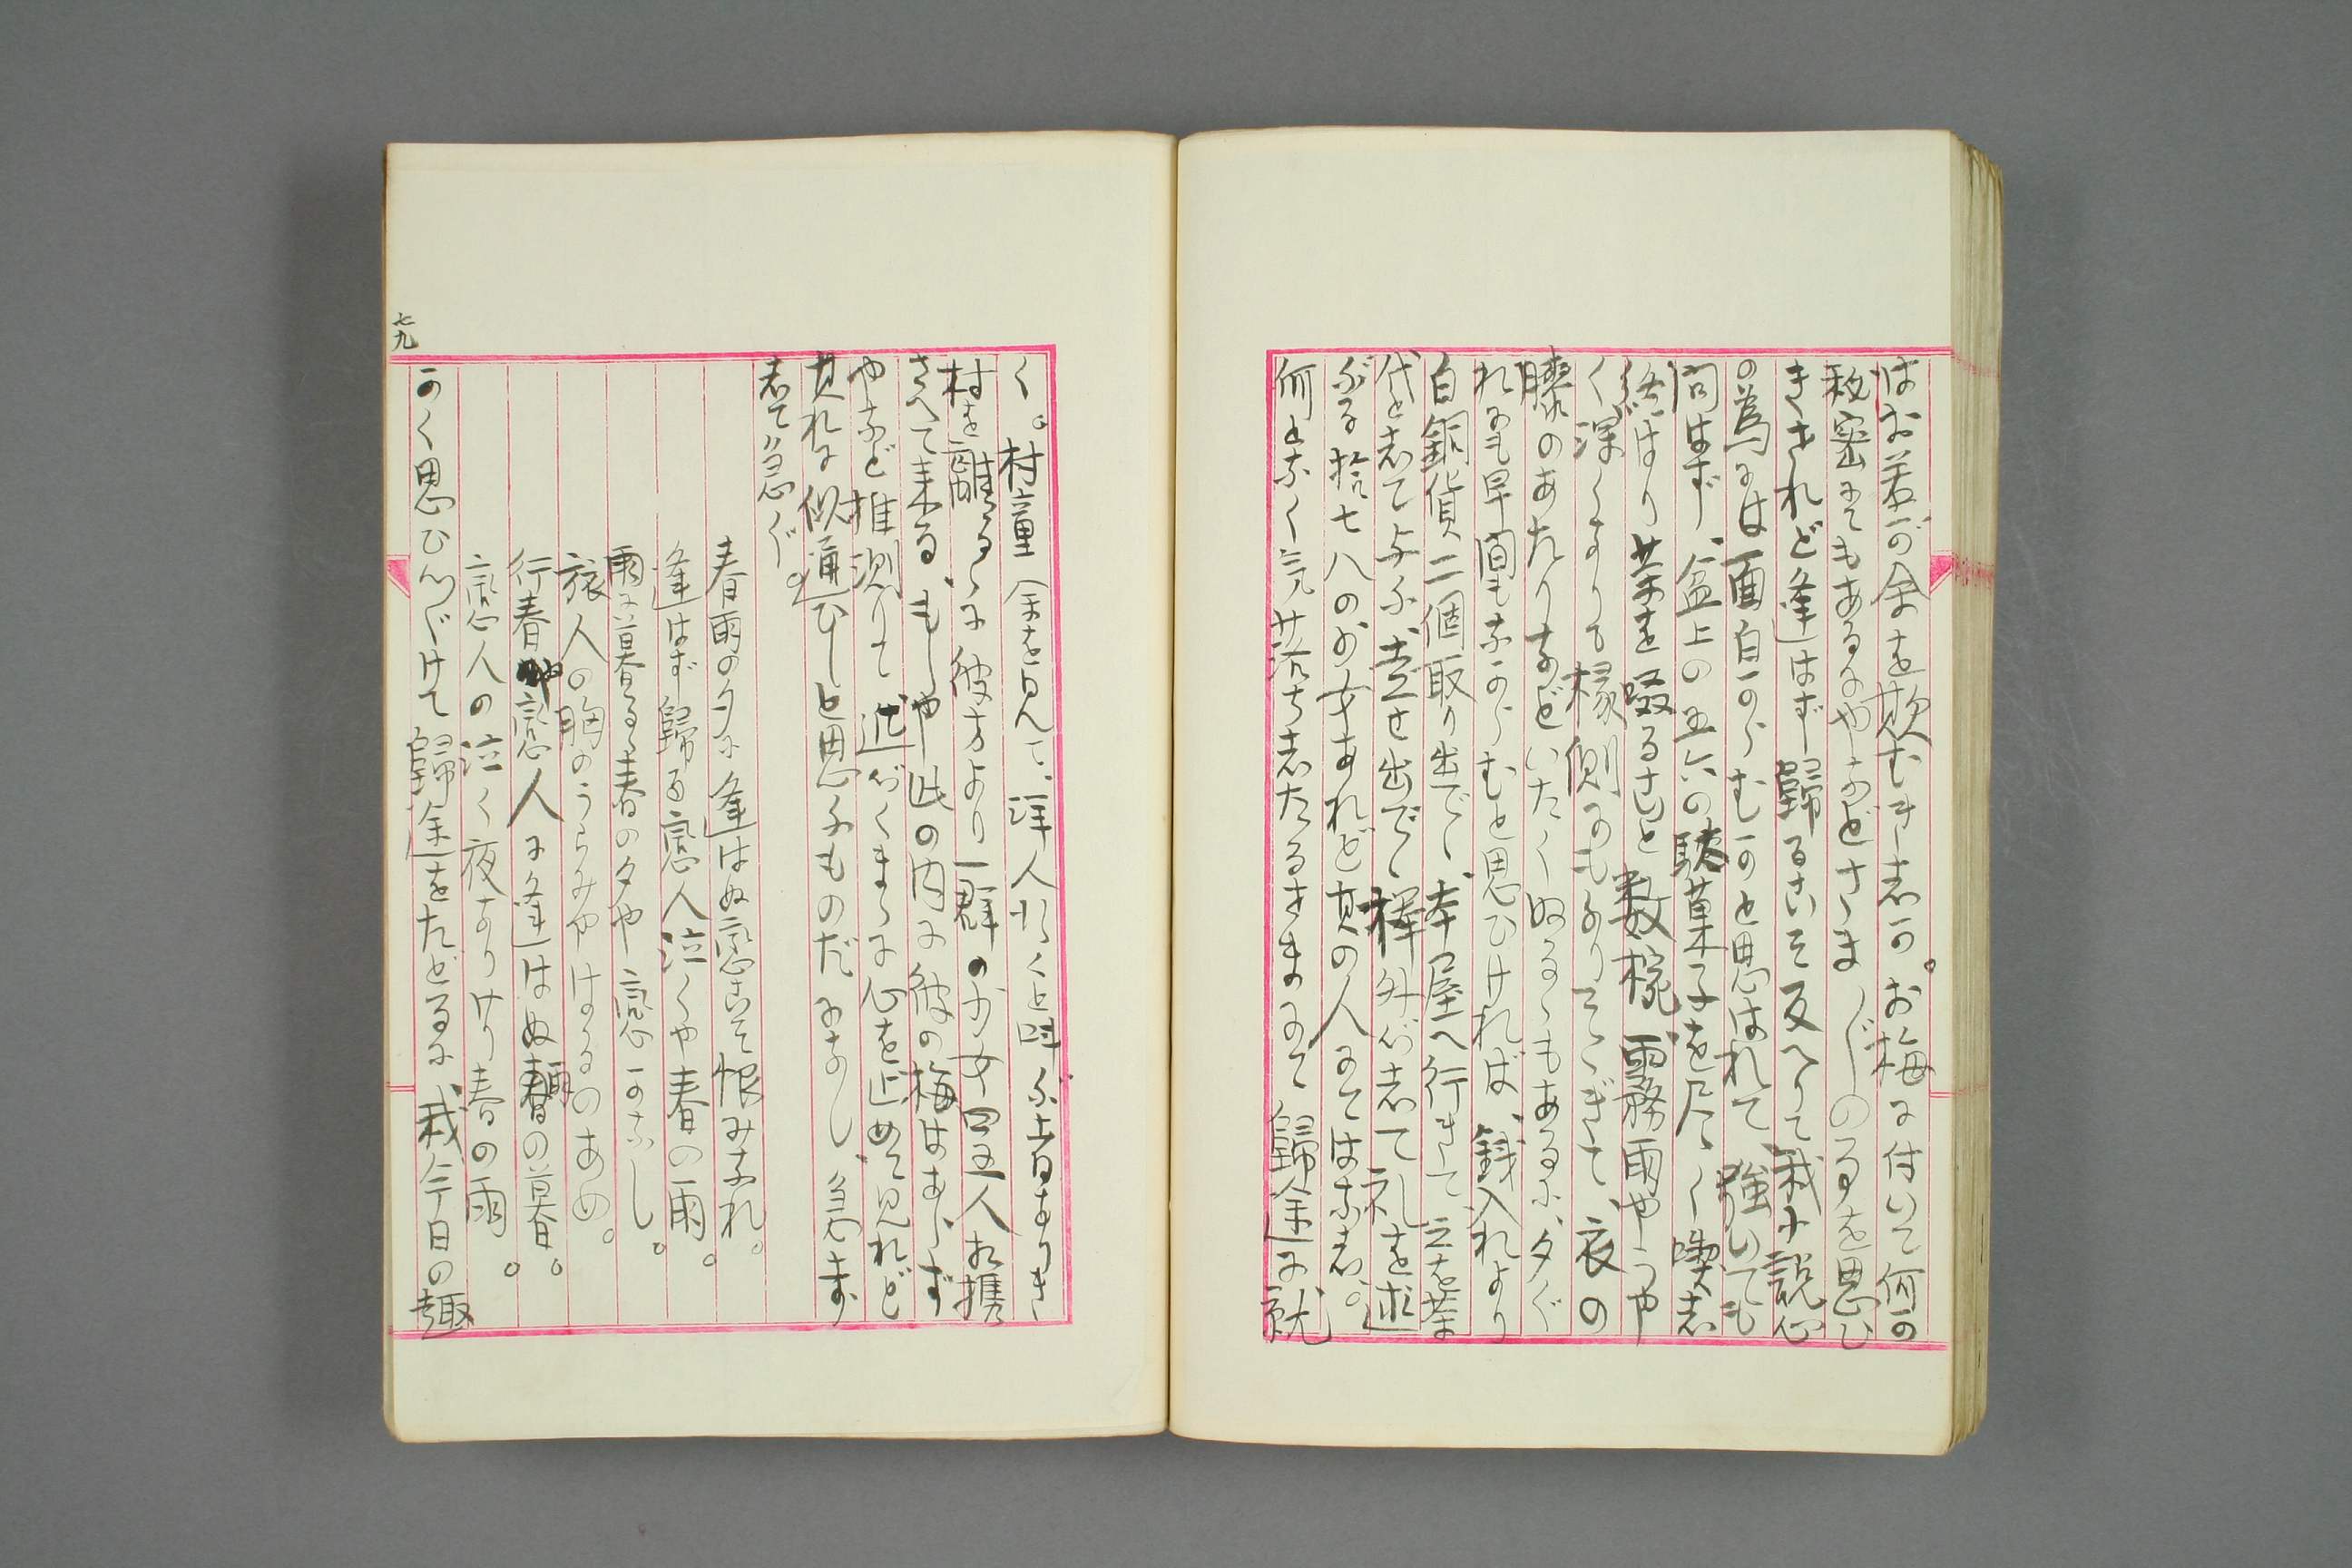 はお若が余を欺むきし者か。お梅に付いて何か
秘密にてもあるにやなどさま〴〵のるを思ひ
きされど逢はず歸るこそ反へつて我小説心
の為には面白からむかと思はれて、強いても
問はず、盆上の五六の駄菓子を尽く喫し
終はり茶を啜ること数椀、霧雨やうや
く深くなりて椽側にもなりそゝぎて、衣の
膝のあたりなどいたくぬるゝもあるに、夕ぐ
れにも早間もなからむと思ひければ、銭入れより
白銅貨二個取り出でゝ、本屋へ行きて、之を茶
代として与ふ、立せ出でゝ、襷外づして礼を述
ぶる拾七八の少女あれど其の人にては無し。
何となく氣落ちしたるさまにて歸途に就
く。村童余を見て、洋人行くと呼ぶ者なりき
村を離るゝに彼方より一群の少女四五人相携
さへて来る、もしや此の内に彼の梅はあらず
やなど推測りて近づくまゝに心を止めて見れど
其れに似通ひしと思ふものだになし、急ぎ
して急ぐ。
春雨の夕に逢はぬ戀こそ恨みなれ。
逢はず歸る戀人泣くや春の雨。
雨に暮るゝ春の夕や戀かなし。
旅人の胸のうらみやはるのあめ。
行春 戀人に逢はぬ雨の暮。
戀人の泣く夜なりけり春の雨。
七九
かく思ひつゞけて歸途をたどるに我今日の趣